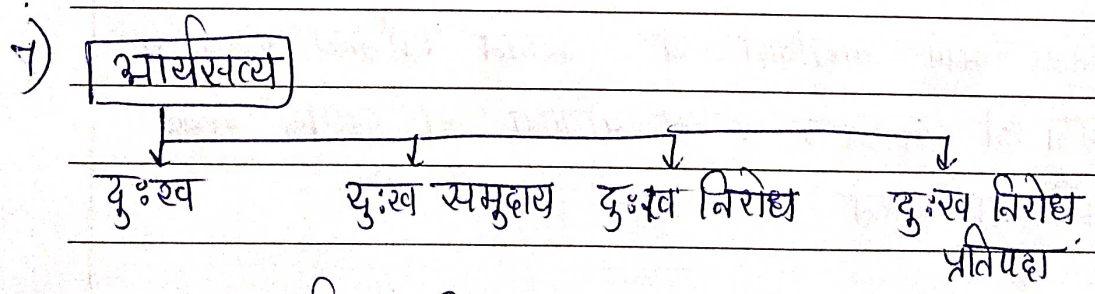 १)
आर्यसत्य
दुःख दुःख समुदाय दुःख निरोध दुःख निरोध
प्रतिपदा